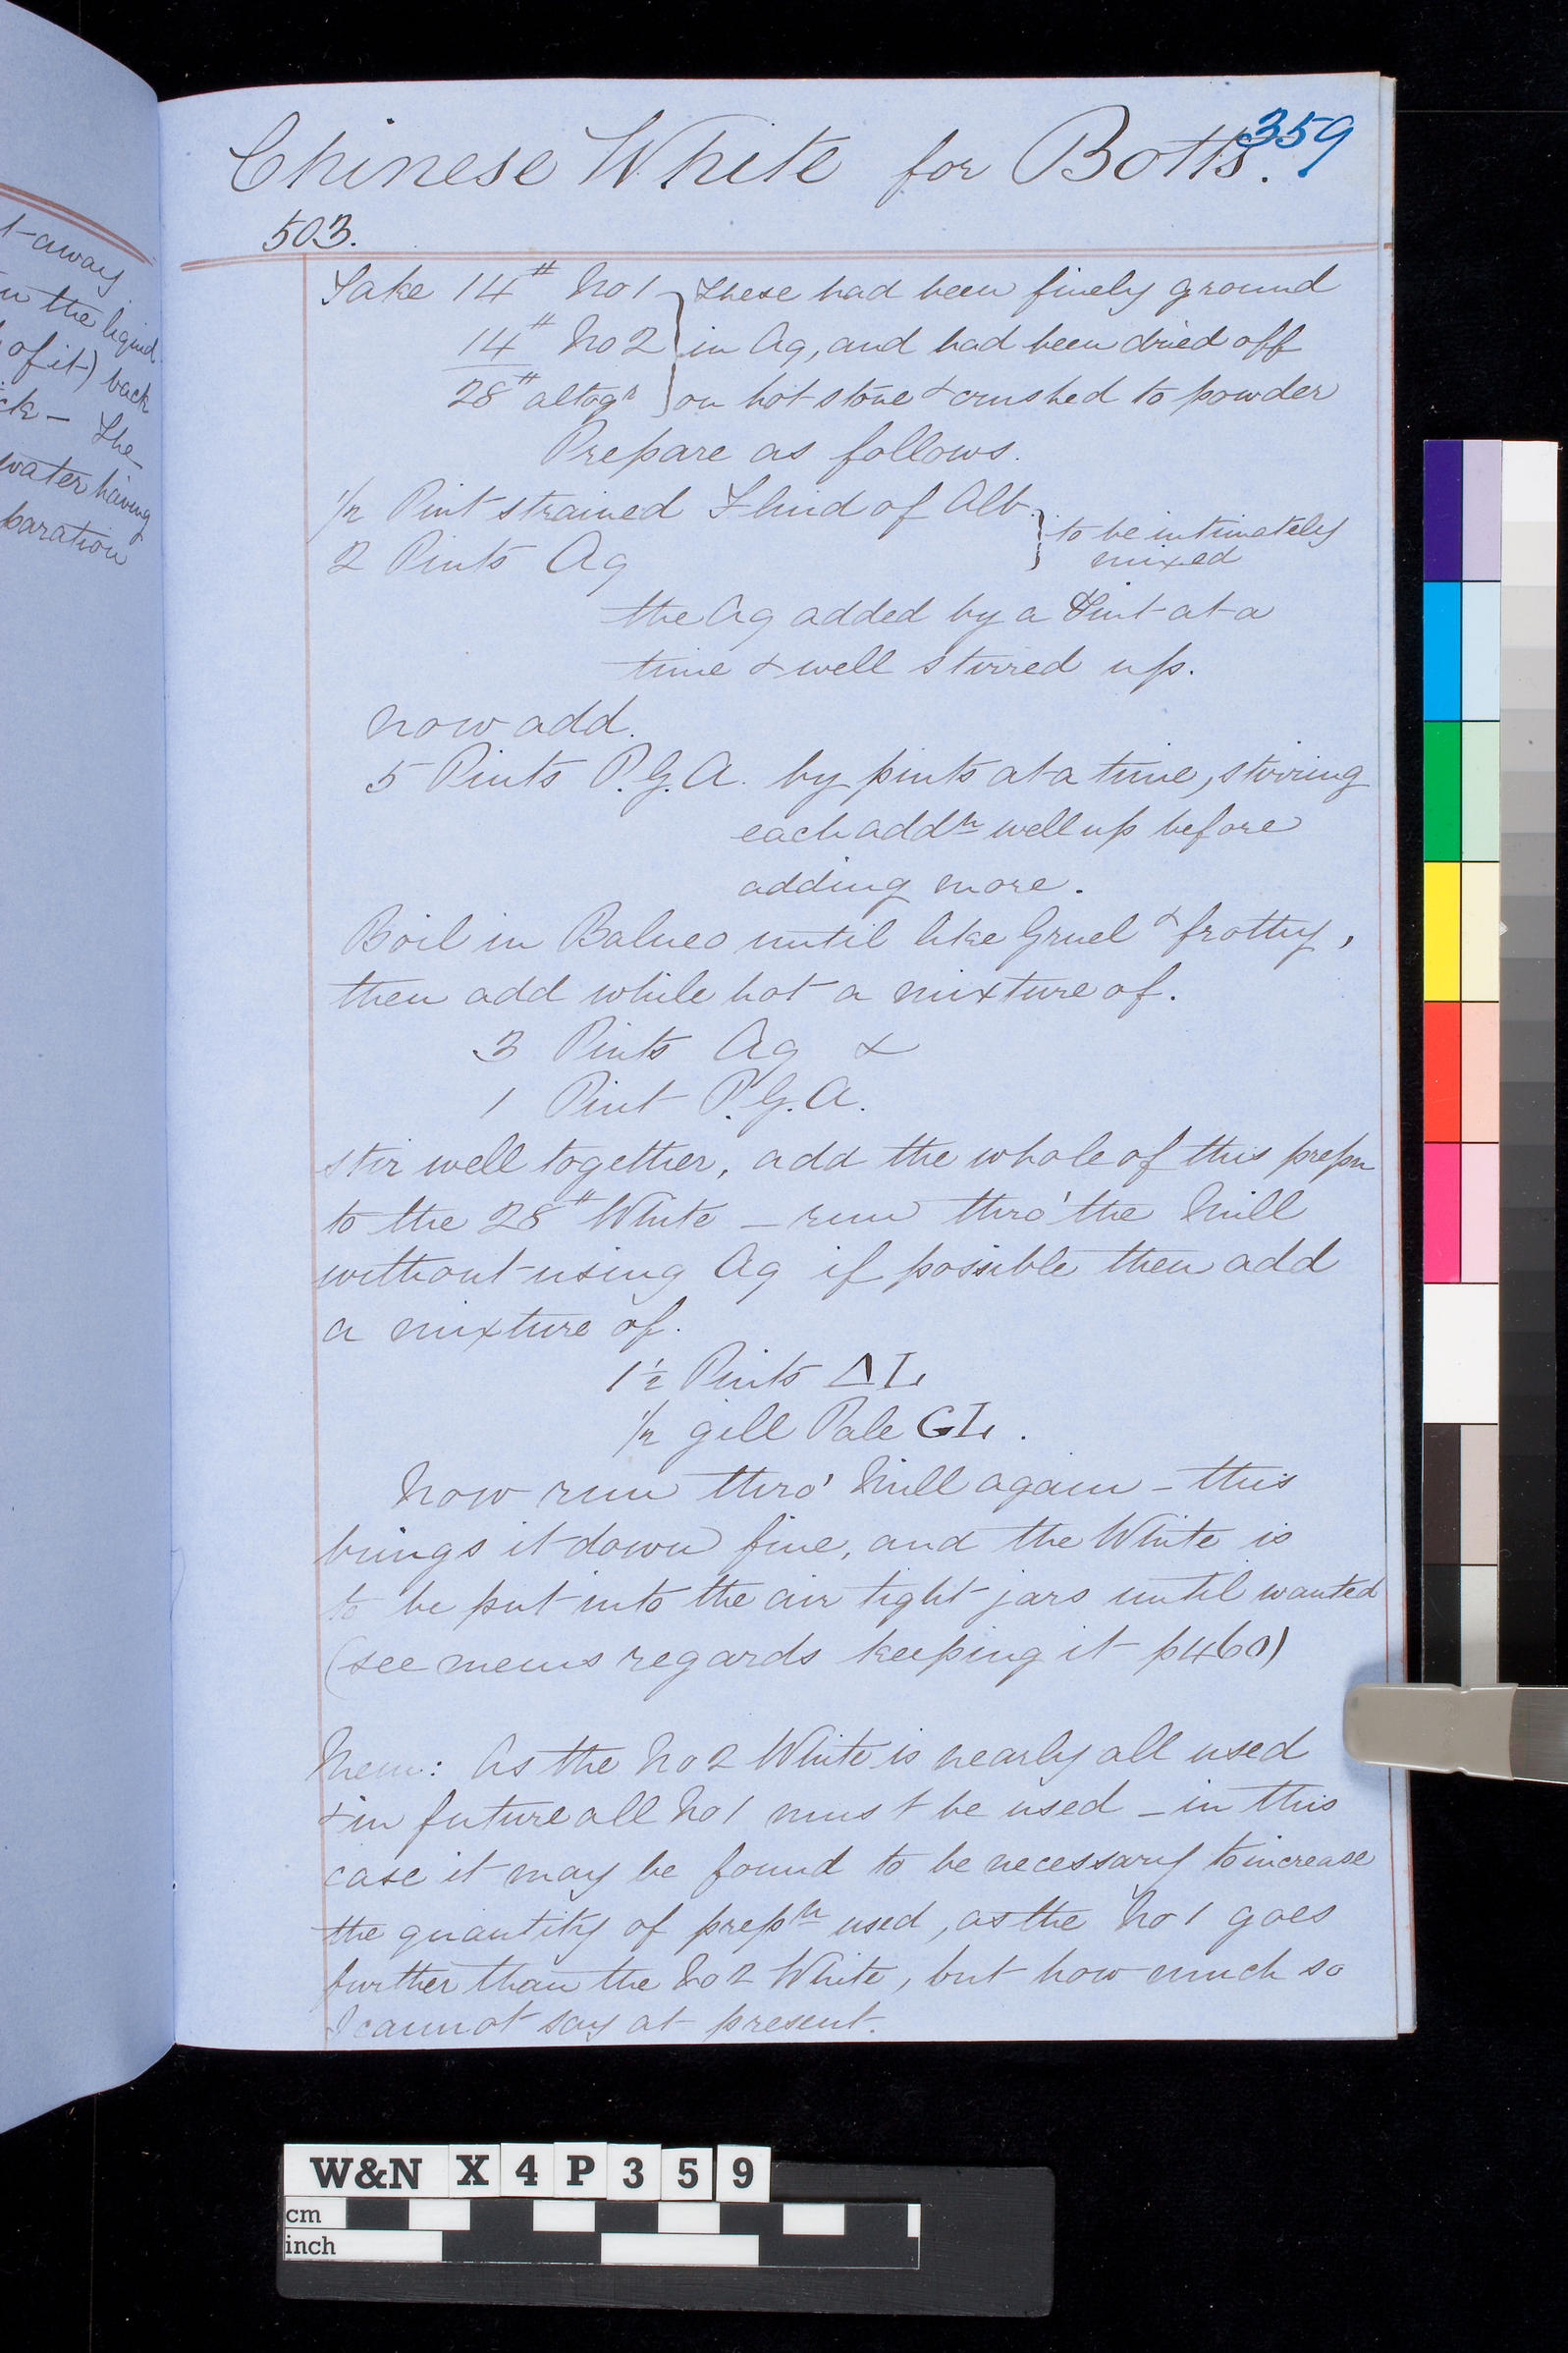 359
Chinese White for Botts.
503.
t-away
in the liquid
of it) back
ck — The
water having
paration
Take 14# No 1 } These had been finely ground
14# No 2 } in Aq, and had been dried off
28# altogr } on hot stone & crushed to powder
Prepare as follows.
1/2 Pint strained Fluid of Alb. } to be intimately
2 Pints Aq } mixed
the Aq added by a Pint at a
time & well stirred up.
now add.
5 Pints P.G.A. by pints at a time, stirring
each addn well up before
adding more.
Boil in Balneo until like Gruel & frothy,
then add while hot a mixture of.
3 Pints Aq &
1 Pint P.G.A.
stir well together, add the whole of this prepn
to the 28# White — run thro' the Mill
without using Aq if possible then add
a mixture of.
1 1/2 Pints ΔL
1/2 gill Pale GL.
Now run thro' Mill again — this
brings it down fine, and the White is
to be put into the air tight jars until wanted
(see mems regards keeping it p460)
Mem: As the No 2 White is nearly all used
& in future all No 1 must be used — in this
case it may be found to be necessary to increase
the quantity of prepn used, as the No 1 goes
further than the No 2 White, but how much so
I cannot say at present.
W&N X 4 P 3 5 9
cm
inch